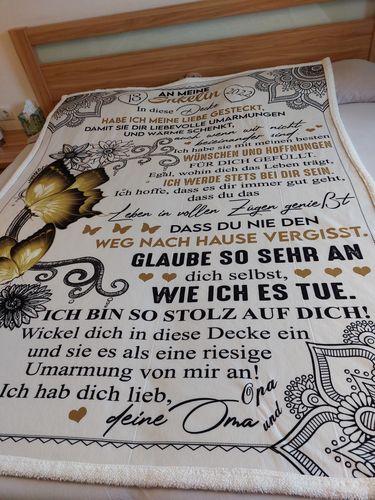 18 AN MEINE 2022
Enkelin
In diese Decke
HABE ICH MEINE LIEBE GESTECKT,
DAMIT SIE DIR LIEBEVOLLE UMARMUNGEN
UND WÄRME SCHENKT,
auch wenn wir nicht
beieinander sind
Ich habe sie mit meinen besten
WÜNSCHEN UND HOFFNUNGEN
FÜR DICH GEFÜLLT.
Egal, wohin dich das Leben trägt,
ICH WERDE STETS BEI DIR SEIN.
Ich hoffe, dass es dir immer gut geht,
dass du das
Leben in vollen Zügen genießt
DASS DU NIE DEN
WEG NACH HAUSE VERGISST.
GLAUBE SO SEHR AN
dich selbst,
WIE ICH ES TUE.
ICH BIN SO STOLZ AUF DICH!
Wickel dich in diese Decke ein
und sie es als eine riesige
Umarmung von mir an!
Ich hab dich lieb,
deine Oma und Opa